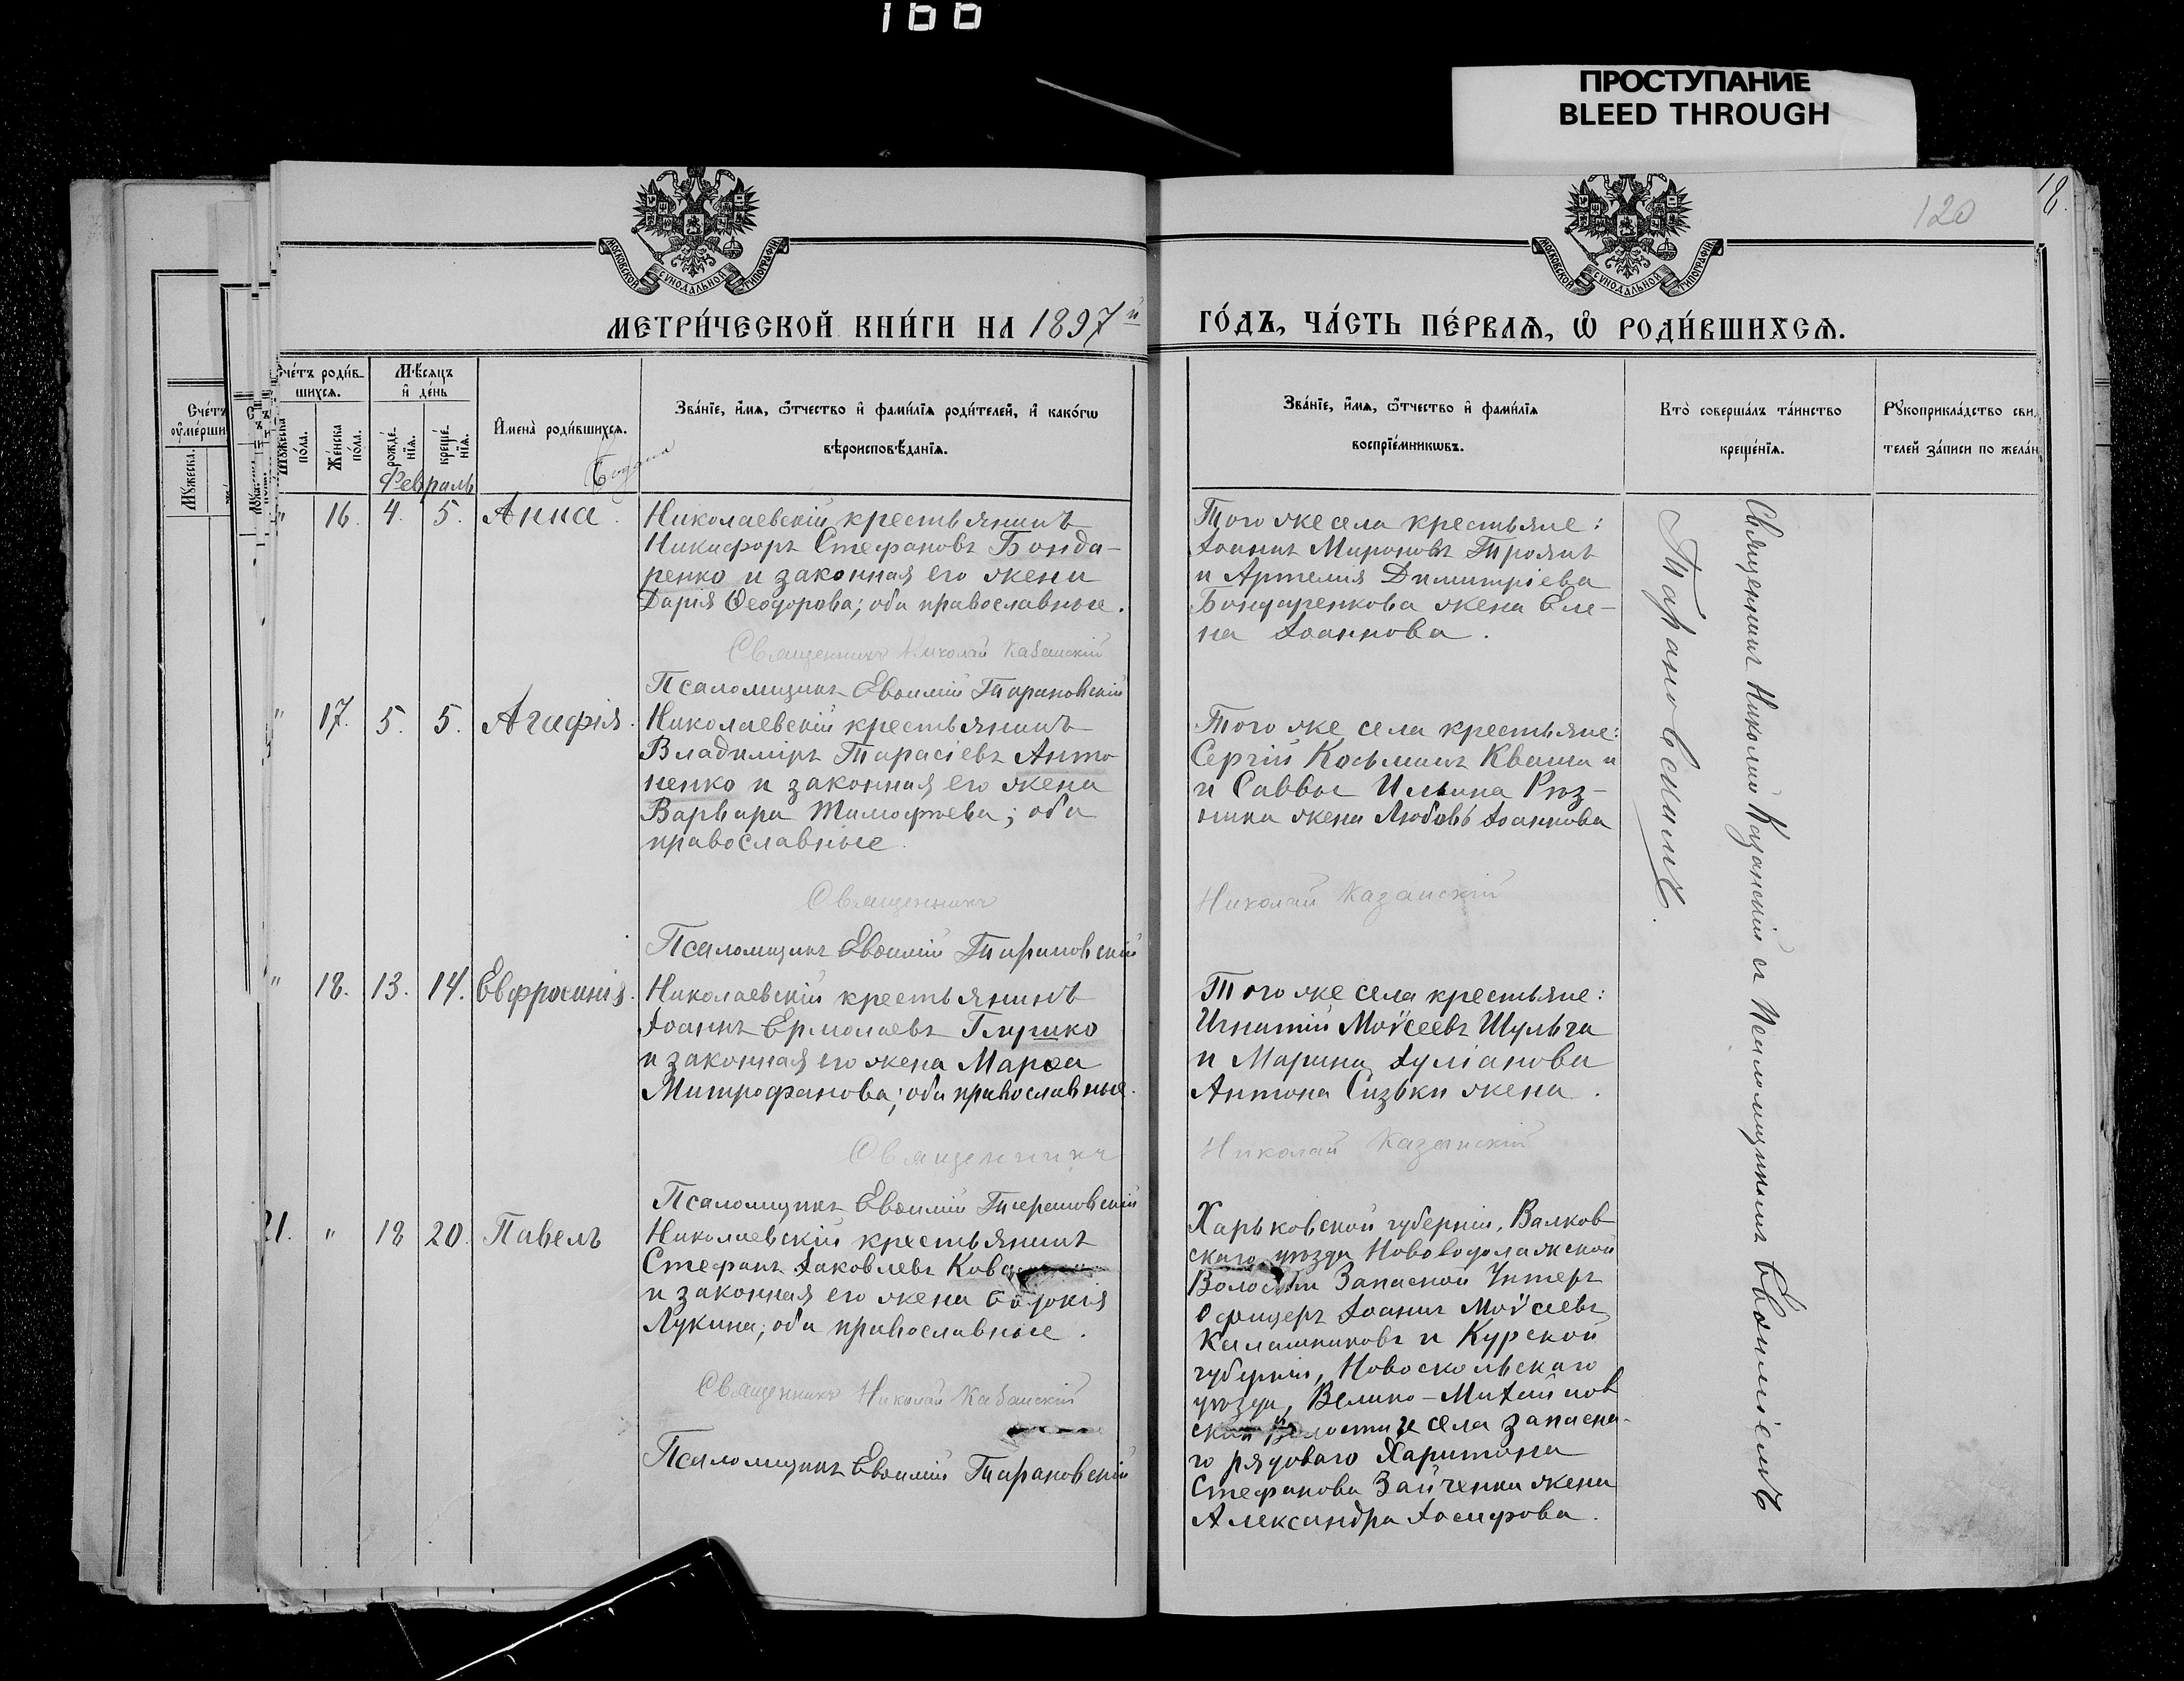 166
ПРОСТУПАНИЕ
BLEED THROUGH
120
18.
МОСКОВСКОЙ СѴНОДАЛЬНОЙ ТИПОГРАФІИ
МОСКОВСКОЙ СѴНОДАЛЬНОЙ ТИПОГРАФІИ
МЕТРИ́ЧЕСКОЙ КНИ́ГИ НА 1897й
ГО́ДЪ, ЧА́СТЬ ПЕ́РВАѦ, Ѡ РОДИ́ВШИХСѦ.
Счéтъ роди́в-
шихся.
Мѣсяцъ
и де́нь
Мꙋжеска по́ла.
Же́нска по́ла.
рожде́нїя.
креще́нїя.
Имена̀ роди́вшихся.
Зва́нїе, и́мя, ѻ҆́тчество и фами́лїя роди́телей, и како́гѡ
вѣроисповѣ́данїя.
Зва́нїе, и́мя, ѻ҆́тчество и фами́лїя
воспрїе́мникѡвъ.
Кто̀ соверша́лъ та́инство
креще́нїя.
Рꙋкоприкла́дство сви
телей за́писи по жела́н
Счéтъ
ᲂу҆ме́рши
Мꙋжеска.
Февраль
" 16. 4. 5. Анна.
Николаевскій крестьянинъ
Никифоръ Стефановъ Бонда-
ренко и законная его жена
Дарія Ѳеодорова; оба православные.
Священникъ Николай Казанскій
Псаломщикъ Евѳимій Тарановскій
Того же села крестьяне:
Іоаннъ Мироновъ Троянъ
и Артемія Димитріева
Бондаренкова жена Еле-
на Іоаннова.
" 17. 5. 5. Агафія.
Николаевскій крестьянинъ
Владиміръ Тарасіевъ Анто
ненко и законная его жена
Варвара Тимофѣева; оба
православные.
Священникъ
Псаломщикъ Евѳимій Тарановскій
Того же села крестьяне:
Сергій Косьминъ Кваша и
и Саввы Ильина
жена Любовь Іоаннова
Николай Казанскій
" 18. 13. 14. Евфросинія.
Николаевскій крестьянинъ
Іоаннъ Ермолаевъ Глушко
и законная его жена Марѳа
Митрофанова; оба православные.
Священникъ
Псаломщикъ Евѳимій Тарановскій
Того же села крестьяне:
Игнатій Моѵсеевъ Шульга
и Марина Іуліанова
Антона Сизьки жена.
Николай Казанскій
21. " 18 20. Павелъ
Николаевскій крестьянинъ
Стефанъ Іаковлевъ
и законная его жена Евдокія
Лукина; оба православные.
Священникъ Николай Казанскій
Псаломщикъ Евѳимій Тарановскій
Харьковской губерніи, Валков
скаго уѣзда Нововодолажской
Волости Запасной Унтеръ
Офицеръ Іоаннъ Моѵсеевъ
Калашниковъ и Курской
губерніи, Новооскольскаго
уѣзда, Велико-Михайлов
ской волости и села запасна-
го рядоваго Харитона
Стефанова Зайченка жена
Александра Іосифова.
Священникъ Николай Казанскій съ Псаломщикомъ Евѳиміемъ
Тарановскимъ.